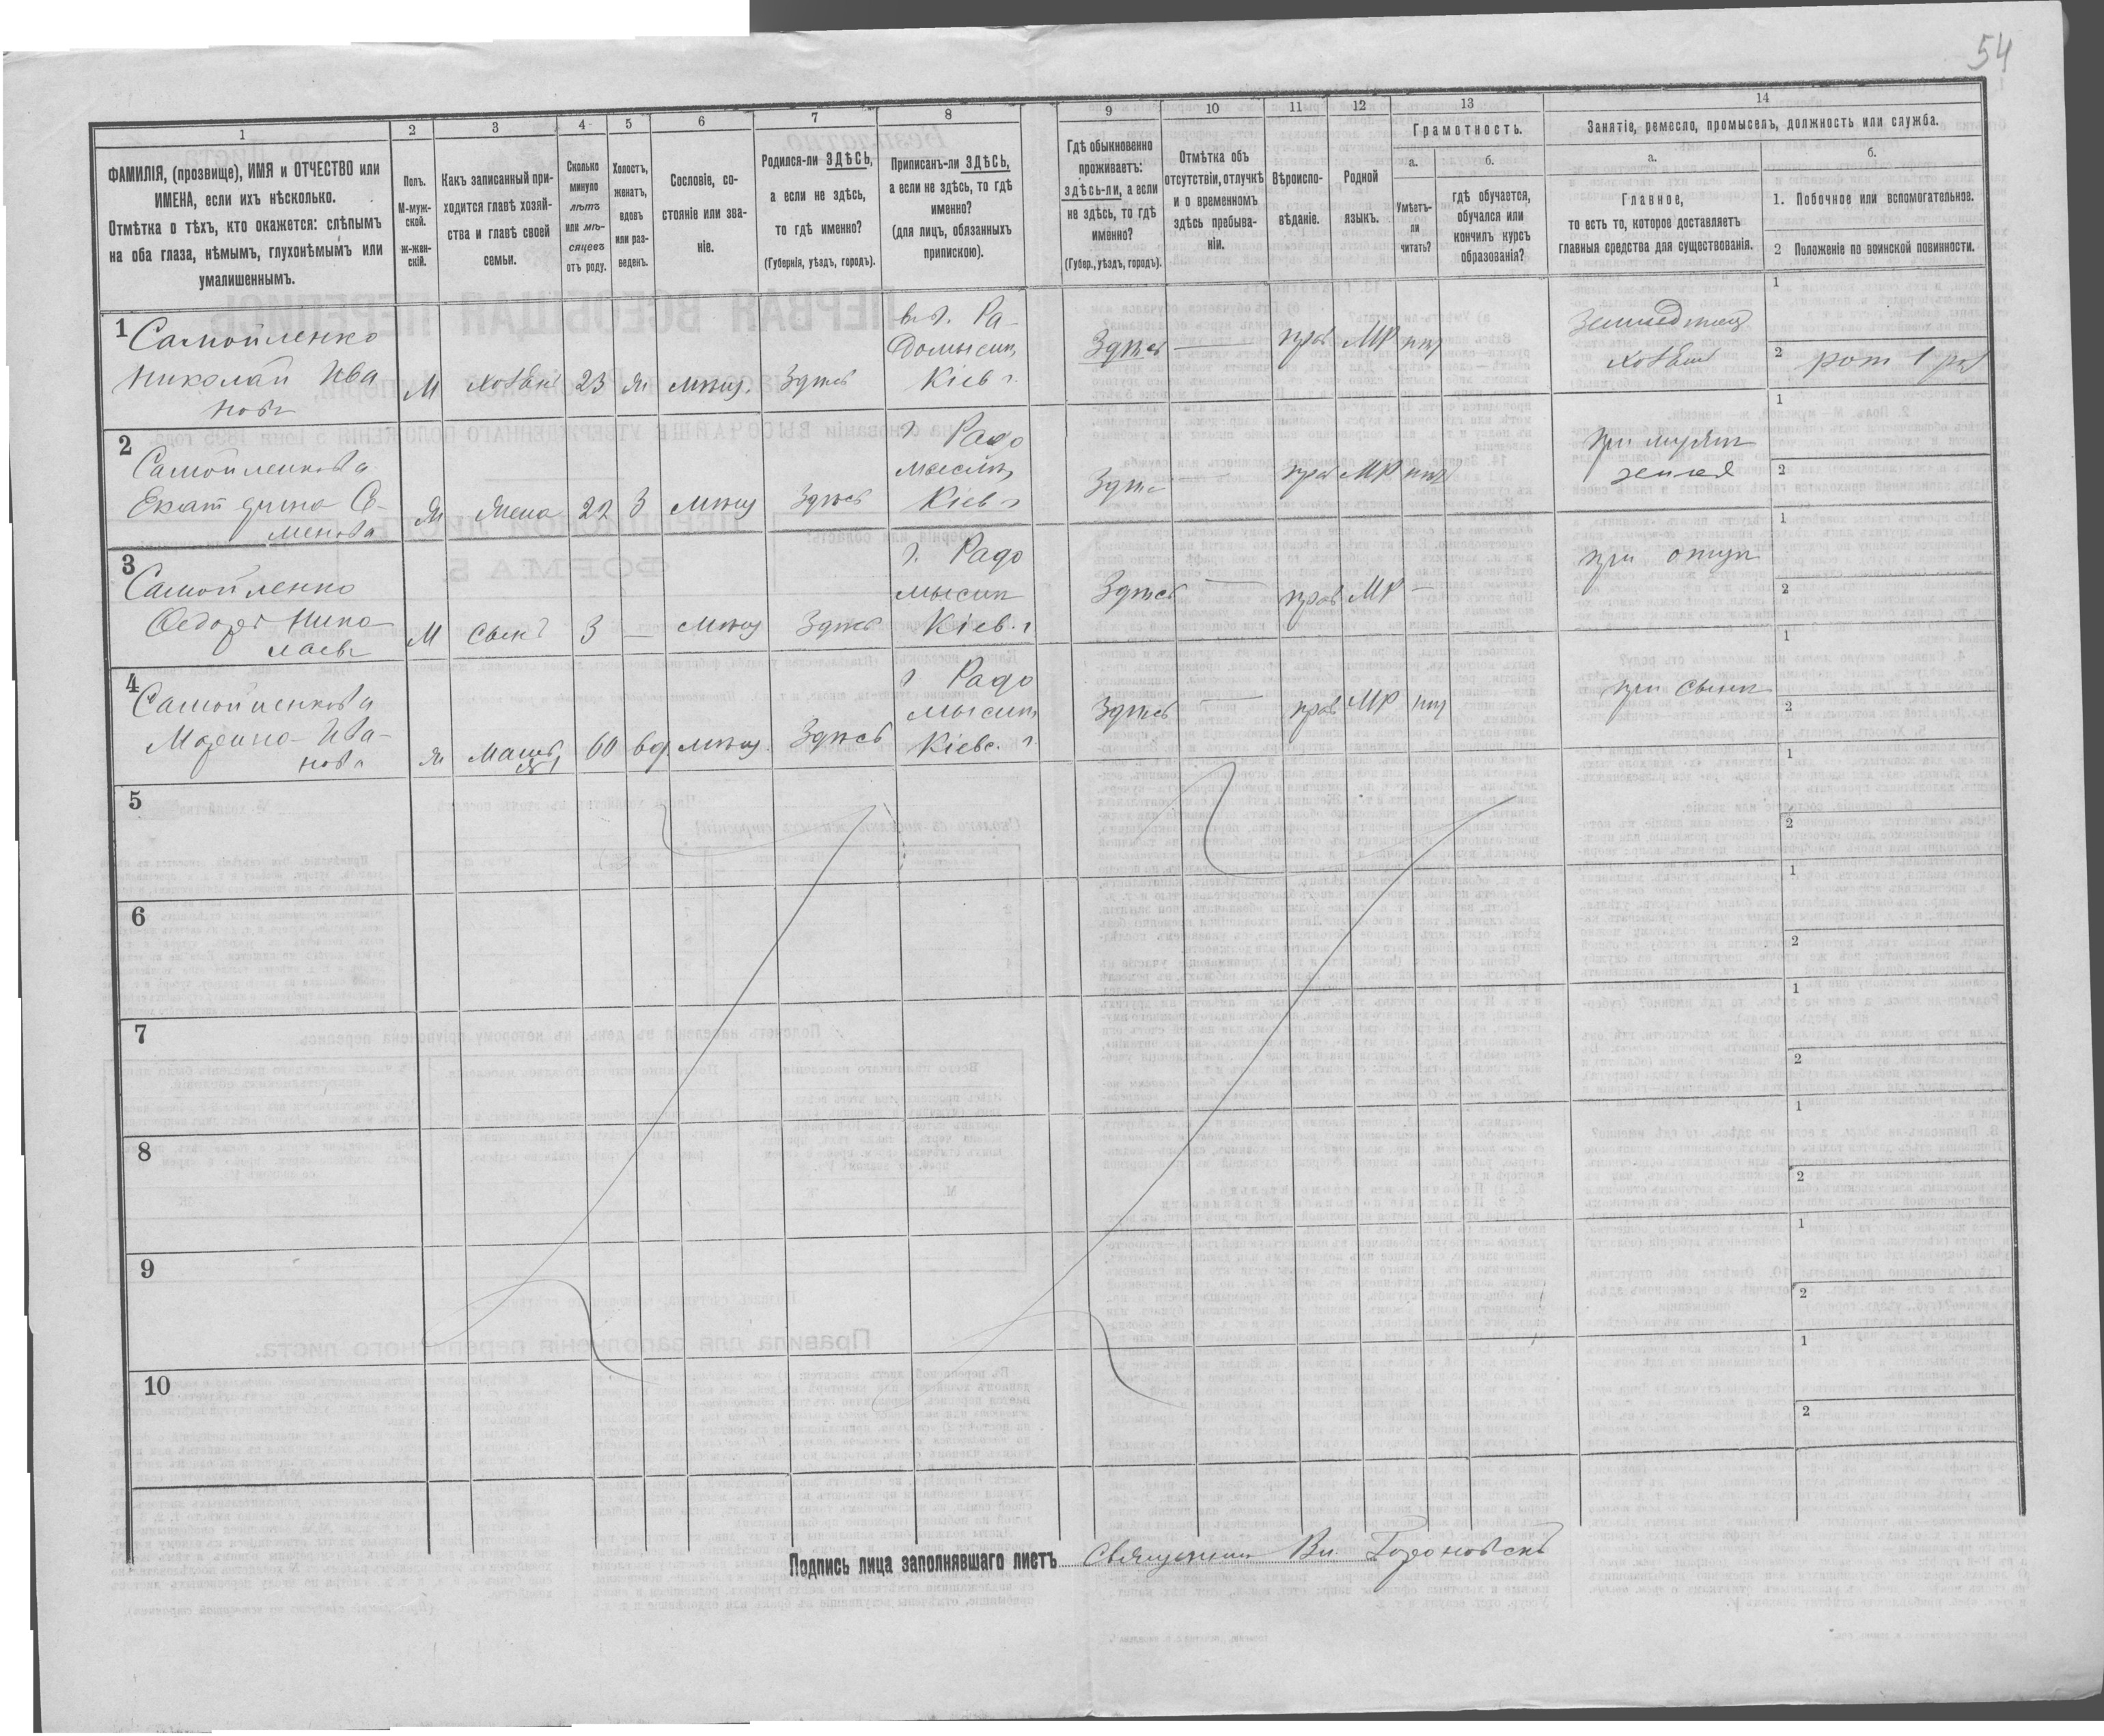 54
1
2
3
4
5
6
7
8
9
10
11
12
13
14
ФАМИЛІЯ, (прозвище), ИМЯ и ОТЧЕСТВО или
ИМЕНА, если ихъ нѣсколько.
Отмѣтка о тѣхъ, кто окажется: слѣпымъ
на оба глаза, нѣмымъ, глухонѣмымъ или
умалишеннымъ.
Полъ.
М-муж-
ской.
ж-жен-
скій.
Какъ записанный при-
ходится главѣ хозяй-
ства и главѣ своей
семьи.
Сколько
минуло
лѣтъ
или мѣ-
сяцевъ
отъ роду.
Холостъ,
женатъ,
вдовъ
или раз-
веденъ.
Сословіе, со-
стояніе или зва-
ніе.
Родился-ли ЗДѢСЬ,
а если не здѣсь,
то гдѣ именно?
(Губернія, уѣздъ, городъ).
Приписанъ-ли ЗДѢСЬ,
а если не здѣсь, то гдѣ
именно?
(для лицъ, обязанныхъ
припискою).
Гдѣ обыкновенно
проживаетъ:
здѣсь-ли, а если
не здѣсь, то гдѣ
именно?
(Губер., уѣздъ, городъ).
Отмѣтка объ
отсутствіи, отлучкѣ
и о временномъ
здѣсь пребыва-
ніи.
Вѣроиспо-
вѣданіе.
Родной
языкъ.
Грамотность.
а.
Умѣетъ-
ли
читать?
б.
гдѣ обучается,
обучался или
кончилъ курсъ
образованія?
Занятіе, ремесло, промыселъ, должность или служба.
а.
Главное,
то есть то, которое доставляетъ
главныя средства для существованія.
б.
1. Побочное или вспомогательное.
2 Положеніе по воинской повинности.
1
Самойленко
Николай Ива
новъ
М
23
Здѣсь
Ра-
домысл
Кіев г.
Здѣсь
прав
МР
1
2
2
Самойленкова
Екатерина Се-
менова
жена
22
З
Здѣсь
г. Радо
мысл
Кіев г
прав
МР
земля
1
2
3
Самойленко
Федоръ Нико
лаевъ
М
сынъ
3
Здѣсь
г. Радо
мысл
Кіев. г
Здѣсь
прав
МР
при отцу
1
2
4
Самойленкова
Марина Ива-
нова
60
вд
Здѣсь
г Радо
мысл
Кіевс. г.
Здѣсь
прав
МР
при сынѣ
1
2
5
1
2
6
1
2
7
1
2
8
1
2
9
1
2
10
1
2
Подпись лица заполнявшаго листъ Священник Вл.